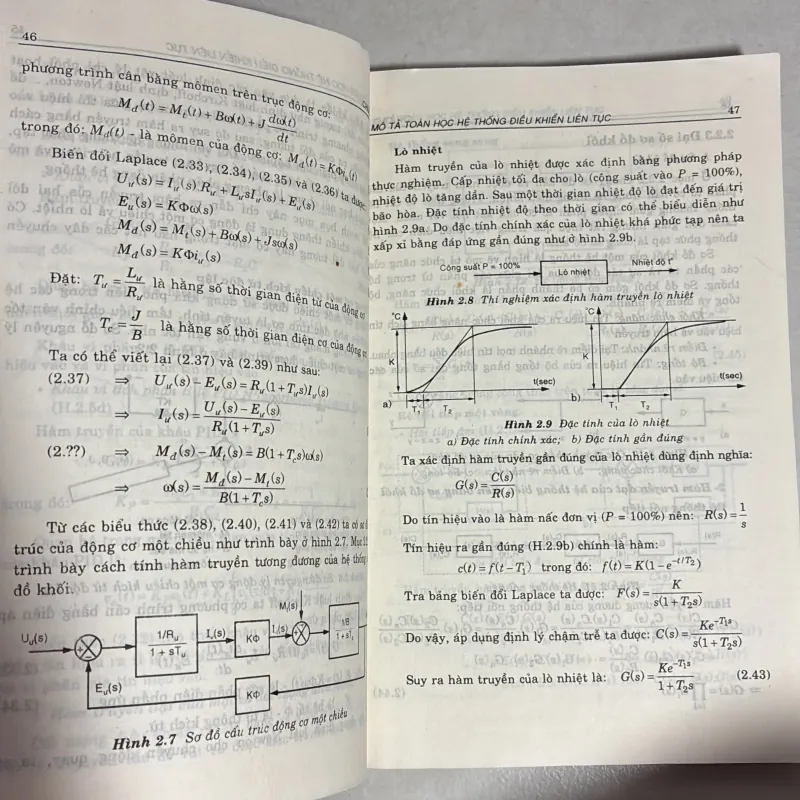 46
phương trình cân bằng mômen trên trục động cơ:
M_d(t) = M_t(t) + Bω(t) + J dω(t)/dt
trong đó: M_d(t) - là mômen của động cơ: M_d(t) = KΦi_ư(t)
Biến đổi Laplace (2.33), (2.34), (2.35) và (2.36) ta được:
U_ư(s) = I_ư(s)R_ư + L_ư sI_ư(s) + E_ư(s)
E_ư(s) = KΦω(s)
M_d(s) = M_t(s) + Bω(s) + Jsω(s)
M_d(s) = KΦi_ư(s)
Đặt: T_ư = L_ư/R_ư là hằng số thời gian điện từ của động cơ
T_c = J/B là hằng số thời gian điện cơ của động cơ
Ta có thể viết lại (2.37) và (2.39) như sau:
(2.37) ⇒ U_ư(s) – E_ư(s) = R_ư(1 + T_ư s)I_ư(s)
⇒ I_ư(s) = (U_ư(s) – E_ư(s))/(R_ư(1 + T_ư s))
(2.??) ⇒ M_d(s) – M_t(s) = B(1 + T_c s)ω(s)
⇒ ω(s) = (M_d(s) – M_t(s))/(B(1 + T_c s))
Từ các biểu thức (2.38), (2.40), (2.41) và (2.42) ta có sơ đồ
trúc của động cơ một chiều như trình bày ở hình 2.7. Mục
trình bày cách tính hàm truyền tương đương của hệ thống
đồ khối.
U_ư(s) + – 1/R_ư / 1 + sT_ư I_ư(s) KΦ M_t(s) + – 1/B / 1 + sT
E_ư(s) KΦ
Hình 2.7 Sơ đồ cấu trúc động cơ một chiều
MÔ TẢ TOÁN HỌC HỆ THỐNG ĐIỀU KHIỂN LIÊN TỤC 47
Lò nhiệt
Hàm truyền của lò nhiệt được xác định bằng phương pháp
thực nghiệm. Cấp nhiệt tối đa cho lò (công suất vào P = 100%),
nhiệt độ lò tăng dần. Sau một thời gian nhiệt độ lò đạt đến giá trị
bão hòa. Đặc tính nhiệt độ theo thời gian có thể biểu diễn như
hình 2.9a. Do đặc tính chính xác của lò nhiệt khá phức tạp nên ta
xấp xỉ bằng đáp ứng gần đúng như ở hình 2.9b.
Công suất P = 100% Lò nhiệt Nhiệt độ t°
Hình 2.8 Thí nghiệm xác định hàm truyền lò nhiệt
°C °C
K K
t(sec) t(sec)
a) T₁ T₂ b) T₁ T₂
Hình 2.9 Đặc tính của lò nhiệt
a) Đặc tính chính xác; b) Đặc tính gần đúng
Ta xác định hàm truyền gần đúng của lò nhiệt dùng định nghĩa:
G(s) = C(s)/R(s)
Do tín hiệu vào là hàm nấc đơn vị (P = 100%) nên: R(s) = 1/s
Tín hiệu ra gần đúng (H.2.9b) chính là hàm:
c(t) = f(t – T₁) trong đó: f(t) = K(1 – e^(–t/T₂))
Tra bảng biến đổi Laplace ta được: F(s) = K/(s(1 + T₂s))
Do vậy, áp dụng định lý chậm trễ ta được: C(s) = Ke^(–T₁s)/(s(1 + T₂s))
Suy ra hàm truyền của lò nhiệt là: G(s) = Ke^(–T₁s)/(1 + T₂s) (2.43)